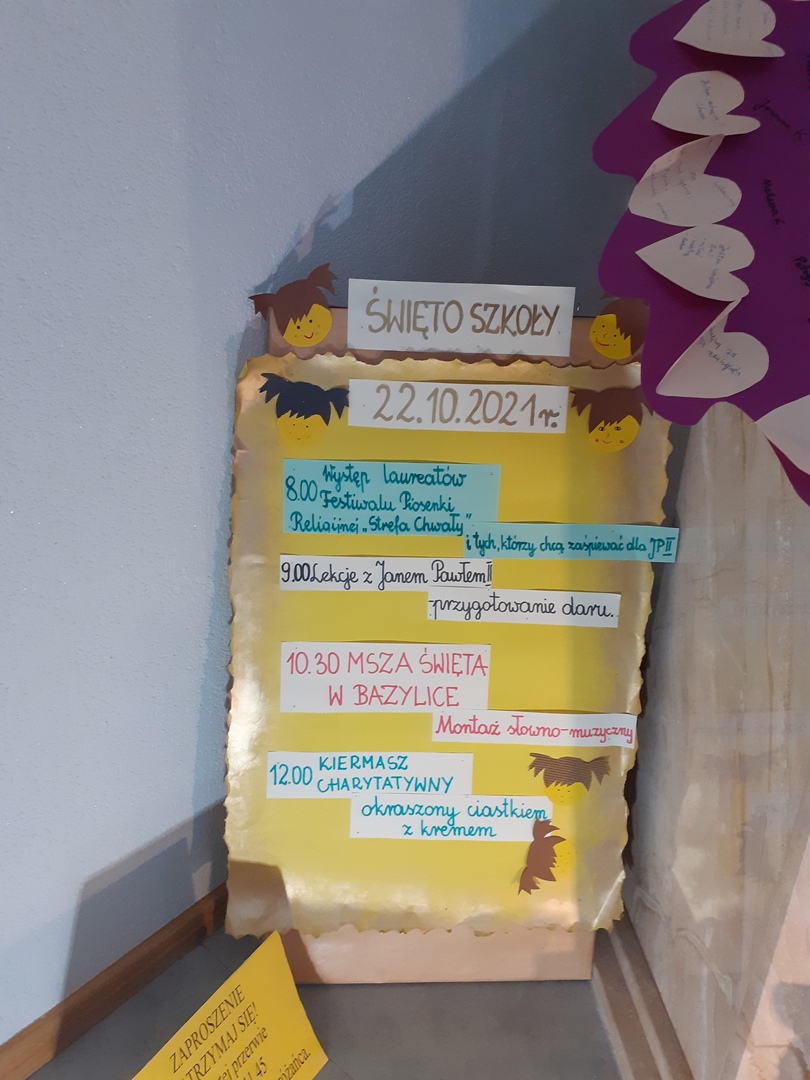 ŚWIĘTO SZKOŁY
22.10.2021 r.
8.00 Występ laureatów
Festiwalu Piosenki
Religijnej „Strefa Chwały”
i tych, którzy chcą zaśpiewać dla JP II
9.00 Lekcje z Janem Pawłem II
-przygotowanie daru.
10.30 MSZA ŚWIĘTA
W BAZYLICE
Montaż słowno-muzyczny
12.00 KIERMASZ
CHARYTATYWNY
okraszony ciastkiem
z kremem
ZAPROSZENIE
TRZYMAJ SIĘ!
przerwie
45